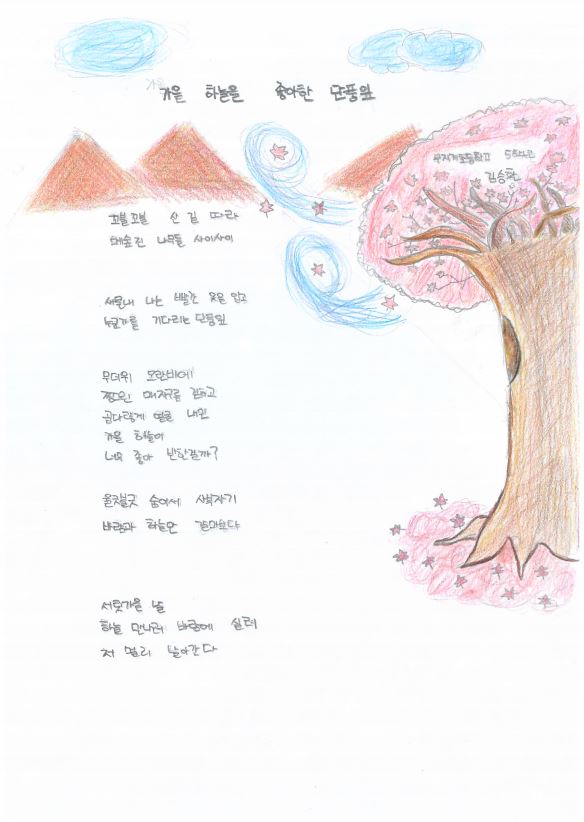 가을 하늘을 좋아한 단풍잎
무지개초등학교 5학년
김승환
꼬불꼬불 산 길 따라
빼숲진 나무들 사이사이
새묻내 나는 빨간 옷을 입고
누군가를 기다리는 단풍잎
무더위 모란비에
찡그린 매자구를 감고
곱다랗게 얼굴 내민
가을 하늘이
너무 좋아 반한걸까?
울긋불긋 숲에서 살짝자기
바람과 하늘만
서룻가을 날
하늘 만나러 바람에 실려
저 멀리 날아간다